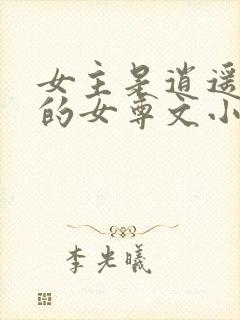 女主是逍遥
的女尊文小
李光曦